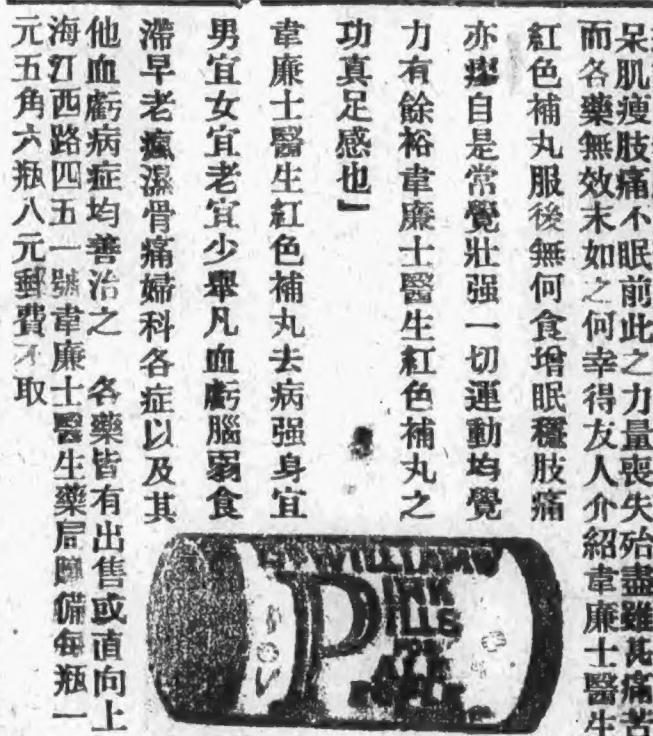 呆肌瘦肢痛不眠前此之力量喪失殆盡雖甚痛苦
而各藥無效末如之何幸得友人介紹韋廉士醫生
紅色補丸服後無何食增眠穩肢痛
亦瘳自是常覺壯强一切運動均覺
力有餘裕韋廉士醫生紅色補丸之
功真足感也』
韋廉士醫生紅色補丸去病强身宜
男宜女宜老宜少舉凡血虧腦弱食
滯早老瘋濕骨痛婦科各症以及其
他血虧病症均善治之 各藥皆有出售或直向上
海江西路四五一號韋廉士醫生藥局購備每瓶一
元五角六瓶八元郵費不取
WILLIAMS
PINK
PILLS
FOR
PALE
PEOPLE